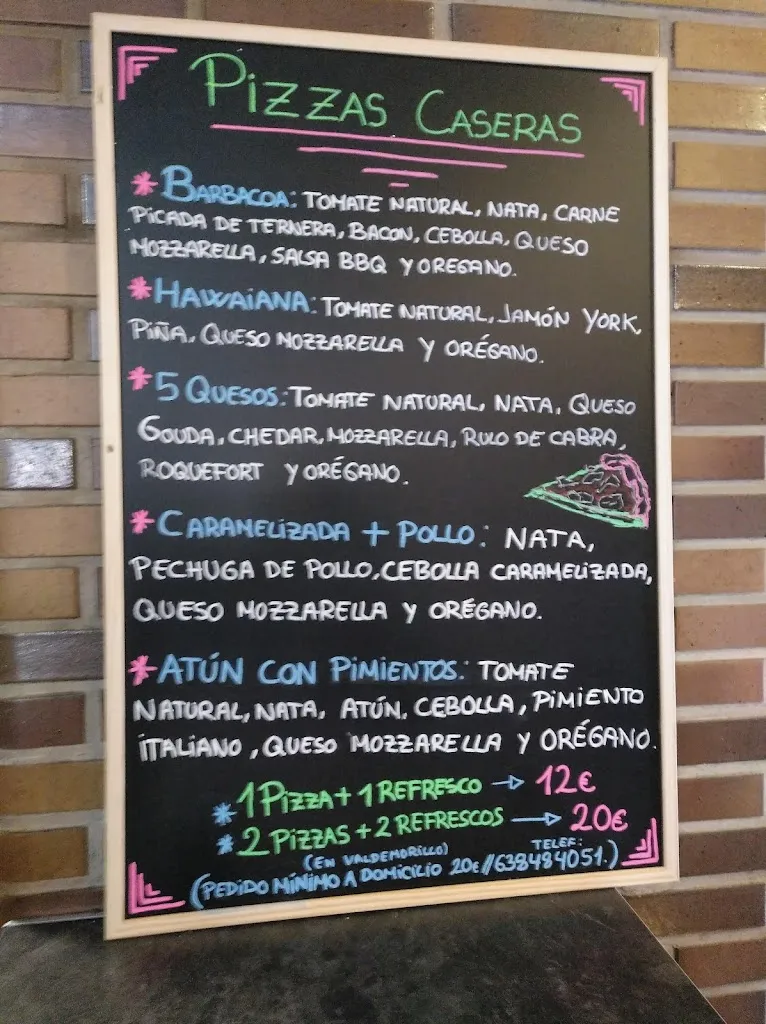 PIZZAS CASERAS
* BARBACOA: TOMATE NATURAL, NATA, CARNE
PICADA DE TERNERA, BACON, CEBOLLA, QUESO
MOZZARELLA, SALSA BBQ Y OREGANO.
* HAWAIANA: TOMATE NATURAL, JAMÓN YORK,
PIÑA, QUESO MOZZARELLA Y ORÉGANO.
* 5 QUESOS: TOMATE NATURAL, NATA, QUESO
GOUDA, CHEDAR, MOZZARELLA, RULO DE CABRA,
ROQUEFORT Y ORÉGANO.
* CARAMELIZADA + POLLO: NATA,
PECHUGA DE POLLO, CEBOLLA CARAMELIZADA,
QUESO MOZZARELLA Y ORÉGANO.
* ATÚN CON PIMIENTOS: TOMATE
NATURAL, NATA, ATÚN, CEBOLLA, PIMIENTO
ITALIANO, QUESO MOZZARELLA Y ORÉGANO.
* 1 PIZZA + 1 REFRESCO → 12€
* 2 PIZZAS + 2 REFRESCOS → 20€
(EN VALDEMORILLO) TELEF:
(PEDIDO MÍNIMO A DOMICILIO 20€ // 638484051.)